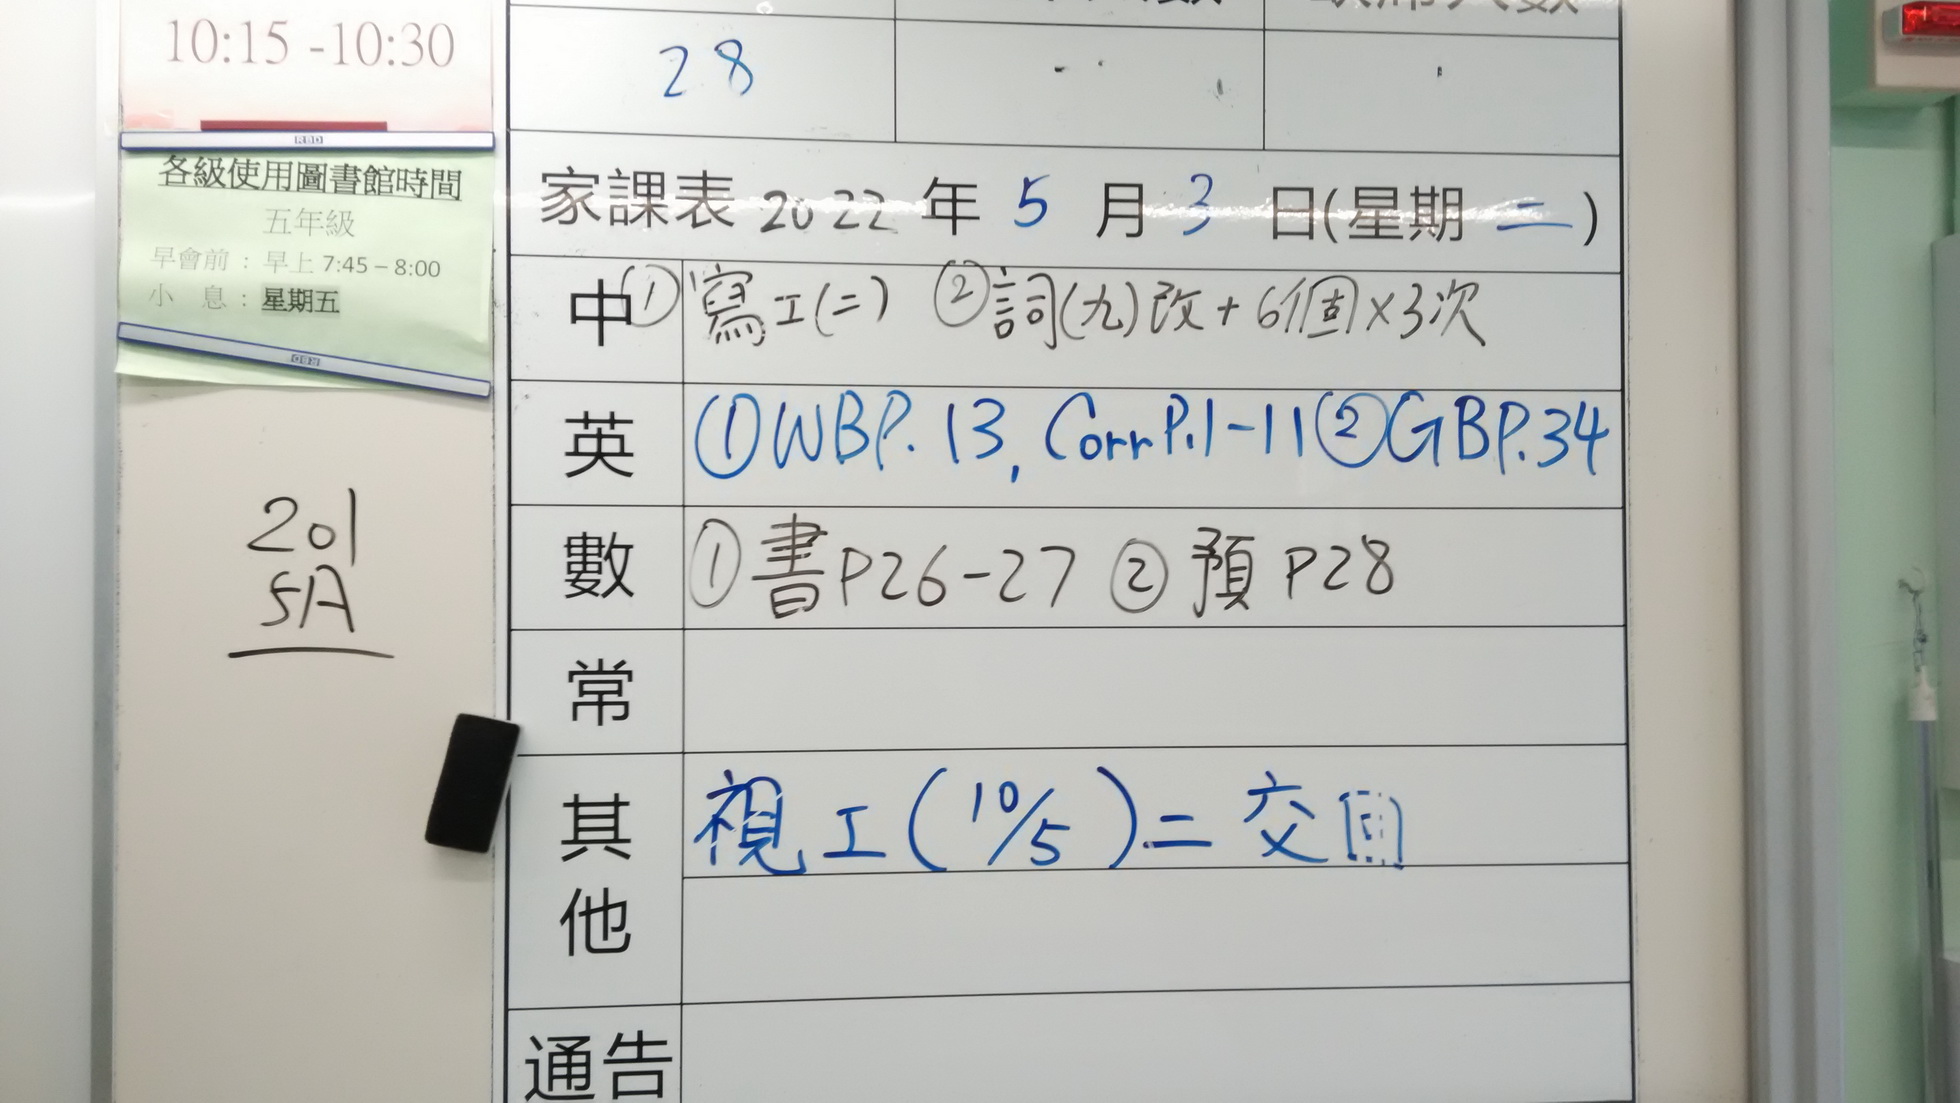 10:15 -10:30
各級使用圖書館時間
五年級
早會前：早上 7:45 – 8:00
小 息：星期五
201
5A
28
家課表 2022 年 5 月 3 日(星期 二)
中 ① 寫工(二) ② 詞(九)改+6個×3次
英 ①WBP.13, Corr P.1-11 ②GBP.34
數 ①書P26-27 ②預 P28
常
其他 視工(10/5)二 交回
通告